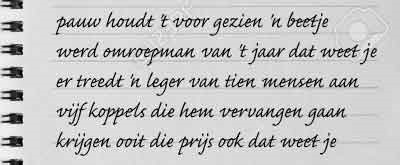 pauw houdt 't voor gezien 'n beetje
werd omroepman van 't jaar dat weet je
er treedt 'n leger van tien mensen aan
vijf koppels die hem vervangen gaan
krijgen ooit die prijs ook dat weet je